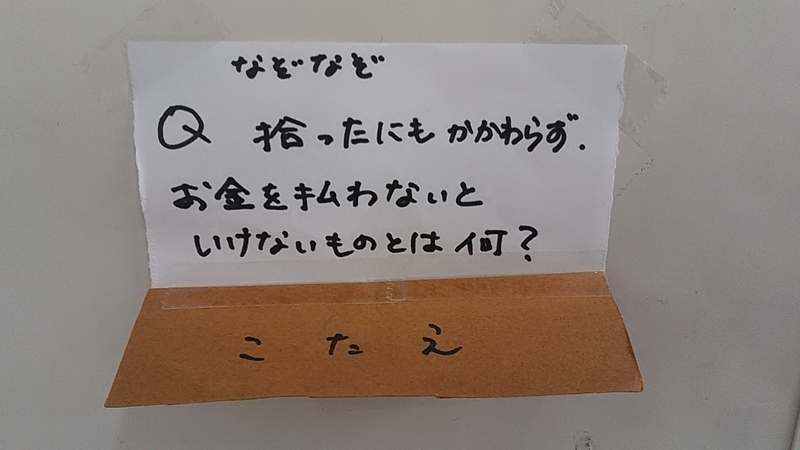 なぞなぞ
Q 拾ったにもかかわらず.
お金を払わないと
いけないものとは何?
こたえ